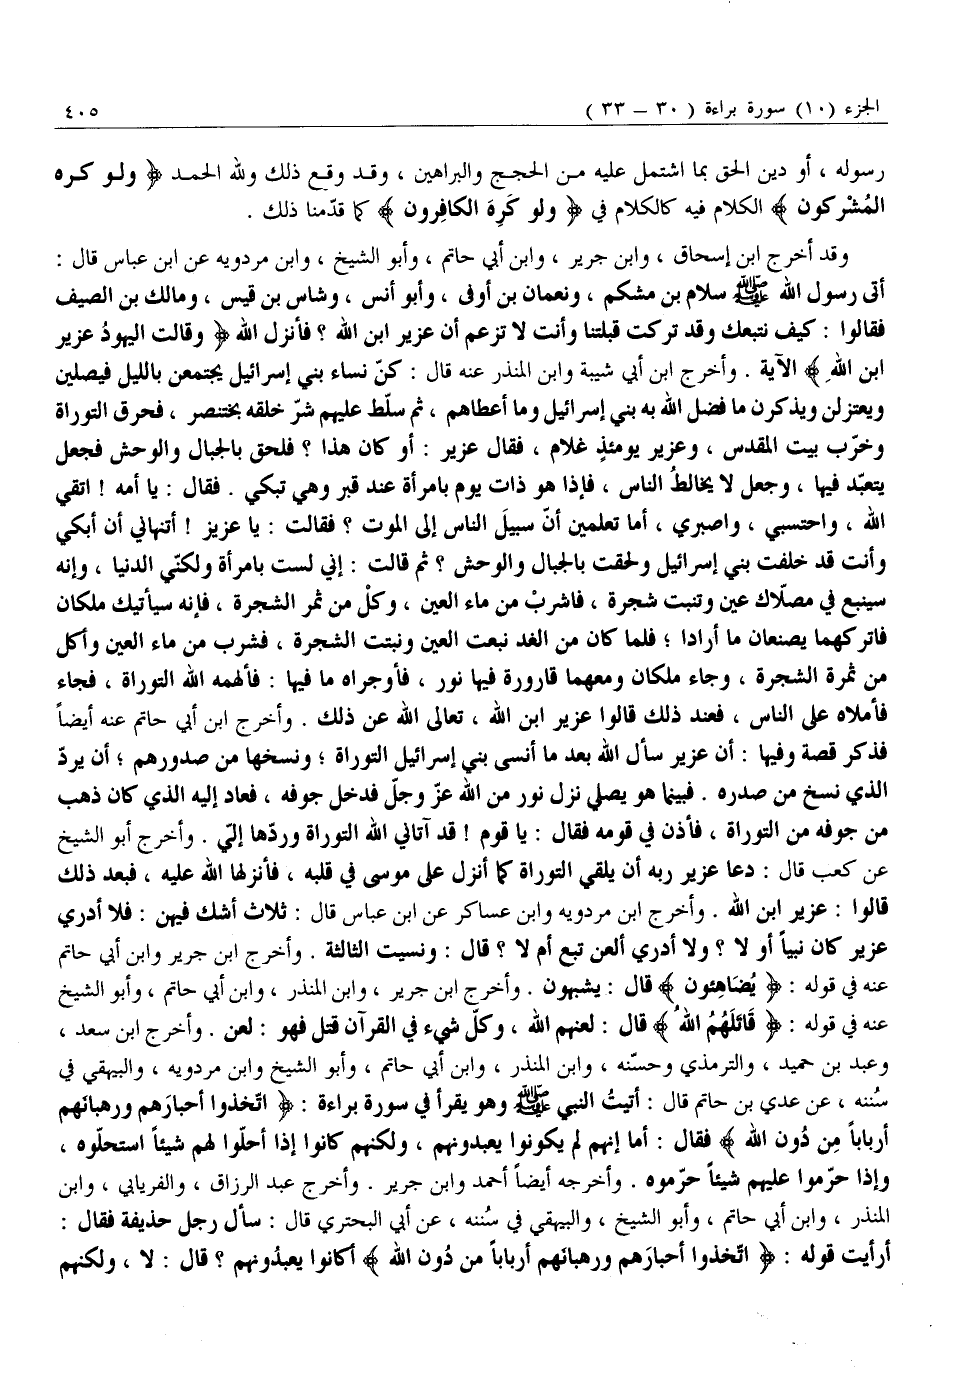 الجزء (١٠) سورة براءة ( ٣٠ – ٣٣ ) ٤٠٥
رسوله ، أو دين الحق بما اشتمل عليه مـن الحجـج والبراهين ، وقـد وقـع ذلك ولله الحمـد ﴿ ولـو كـره
المُشْركون ﴾ الكلام فيه كالكلام في ﴿ ولو كَرِهَ الكافِرون ﴾ كما قدّمنا ذلك .
وقد أخرج ابن إسحاق ، وابن جرير ، وابن أبي حاتم ، وأبو الشيخ ، وابن مردويه عن ابن عباس قال :
أتى رسول الله ﷺ سلام بن مشكم ، ونعمان بن أوفى ، وأبو أنس ، وشاس بن قيس ، ومالك بن الصيف
فقالوا : كيف نتبعك وقد تركت قبلتنا وأنت لا تزعم أن عزير ابن الله ؟ فأنزل الله ﴿ وقالت اليهودُ عزير
ابن اللهِ ﴾ الآية . وأخرج ابن أبي شيبة وابن المنذر عنه قال : كنّ نساء بني إسرائيل يجتمعن بالليل فيصلين
ويعتزلن ويذكرن ما فضل الله به بني إسرائيل وما أعطاهم ، ثم سلّط عليهم شرّ خلقه بختنصر ، فحرق التوراة
وخرّب بيت المقدس ، وعزير يومئذٍ غلام ، فقال عزير : أو كان هذا ؟ فلحق بالجبال والوحش فجعل
يتعبّد فيها ، وجعل لا يخالطُ الناس ، فإذا هو ذات يوم بامرأة عند قبر وهي تبكي . فقال : يا أمه ! اتقي
الله ، واحتسبي ، واصبري ، أما تعلمين أنّ سبيلَ الناس إلى الموت ؟ فقالت : يا عزيز ! أتنهاني أن أبكي
وأنت قد خلفت بني إسرائيل ولحقت بالجبال والوحش ؟ ثم قالت : إني لست بامرأة ولكنّي الدنيا ، وإنه
سينبع في مصلّاك عين وتنبت شجرة ، فاشربْ من ماء العين ، وكلْ من ثمر الشجرة ، فإنه سيأتيك ملكان
فاتركهما يصنعان ما أرادا ؛ فلما كان من الغد نبعت العين ونبتت الشجرة ، فشرب من ماء العين وأكل
من ثمرة الشجرة ، وجاء ملكان ومعهما قارورة فيها نور ، فأوجراه ما فيها : فألهمه الله التوراة ، فجاء
فأملاه على الناس ، فعند ذلك قالوا عزير ابن الله ، تعالى الله عن ذلك . وأخرج ابن أبي حاتم عنه أيضاً
فذكر قصة وفيها : أن عزير سأل الله بعد ما أنسى بني إسرائيل التوراة ؛ ونسخها من صدورهم ؛ أن يردّ
الذي نسخ من صدره . فبينما هو يصلي نزل نور من الله عزّ وجلّ فدخل جوفه ، فعاد إليه الذي كان ذهب
من جوفه من التوراة ، فأذن في قومه فقال : يا قوم ! قد آتاني الله التوراة وردّها إليّ . وأخرج أبو الشيخ
عن كعب قال : دعا عزير ربه أن يلقي التوراة كما أنزل على موسى في قلبه ، فأنزلها الله عليه ، فبعد ذلك
قالوا : عزير ابن الله . وأخرج ابن مردويه وابن عساكر عن ابن عباس قال : ثلاث أشك فيهن : فلا أدري
عزير كان نبياً أو لا ؟ ولا أدري ألعن تبع أم لا ؟ قال : ونسيت الثالثة . وأخرج ابن جرير وابن أبي حاتم
عنه في قوله : ﴿ يُضَاهِئون ﴾ قال : يشبهون . وأخرج ابن جرير ، وابن المنذر ، وابن أبي حاتم ، وأبو الشيخ
عنه في قوله : ﴿ قَاتَلَهُمُ اللهُ ﴾ قال : لعنهم الله ، وكلّ شيء في القرآن قتل فهو : لعن . وأخرج ابن سعد ،
وعبد بن حميد ، والترمذي وحسّنه ، وابن المنذر ، وابن أبي حاتم ، وأبو الشيخ وابن مردويه ، والبيهقي في
سُننه ، عن عدي بن حاتم قال : أتيتُ النبي ﷺ وهو يقرأ في سورة براءة : ﴿ اتّخذوا أحبارَهم ورهبانَهم
أرباباً مِن دُون الله ﴾ فقال : أما إنهم لم يكونوا يعبدونهم ، ولكنهم كانوا إذا أحلّوا لهم شيئاً استحلّوه ،
وإذا حرّموا عليهم شيئاً حرّموه . وأخرجه أيضاً أحمد وابن جرير . وأخرج عبد الرزاق ، والفريابي ، وابن
المنذر ، وابن أبي حاتم ، وأبو الشيخ ، والبيهقي في سُننه ، عن أبي البحتري قال : سأل رجل حذيفة فقال :
أرأيت قوله : ﴿ اتّخذوا أحبارَهم ورهبانَهم أرباباً من دُون الله ﴾ أكانوا يعبدُونهم ؟ قال : لا ، ولكنهم